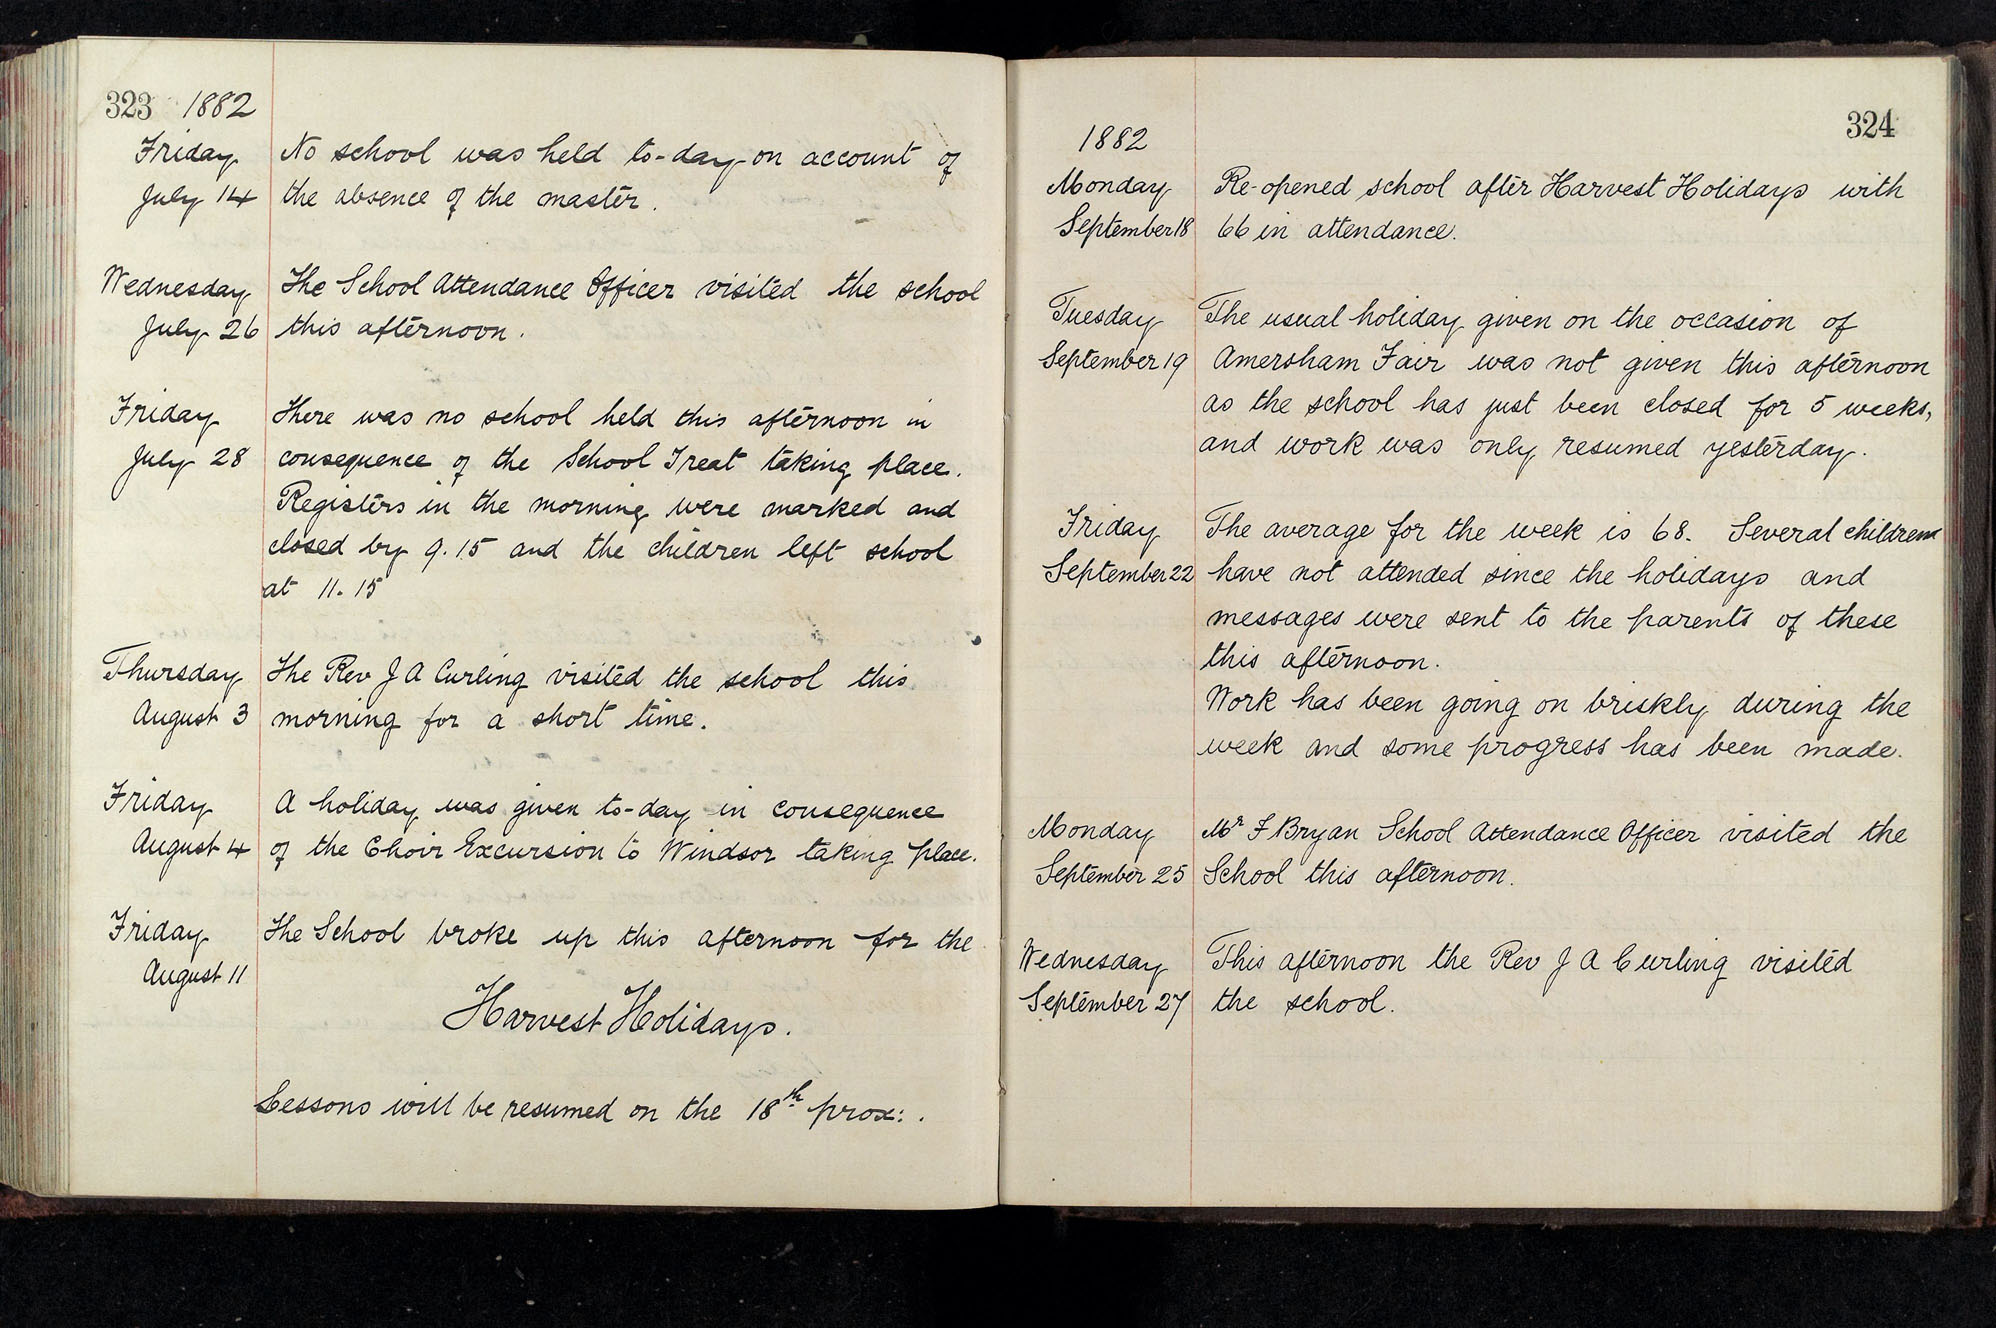 323 1882
Friday No school was held to-day on account of
July 14 the absence of the master.
Wednesday The School Attendance Officer visited the school
July 26 this afternoon.
Friday There was no school held this afternoon in
July 28 consequence of the School Treat taking place.
Registers in the morning were marked and
closed by 9.15 and the children left school
at 11.15
Thursday The Rev J A Curling visited the school this
August 3 morning for a short time.
Friday A holiday was given to-day in consequence
August 4 of the Choir Excursion to Windsor taking place.
Friday The School broke up this afternoon for the
August 11
Harvest Holidays.
Lessons will be resumed on the 18th prox:.
324
1882
Monday Re-opened school after Harvest Holidays with
September 18 66 in attendance.
Tuesday The usual holiday given on the occasion of
September 19 Amersham Fair was not given this afternoon
as the school has just been closed for 5 weeks,
and work was only resumed yesterday.
Friday The average for the week is 68. Several children
September 22 have not attended since the holidays and
messages were sent to the parents of these
this afternoon.
Work has been going on briskly during the
week and some progress has been made.
Monday Mr F Bryan School Attendance Officer visited the
September 25 School this afternoon.
Wednesday This afternoon the Rev J A Curling visited
September 27 the school.